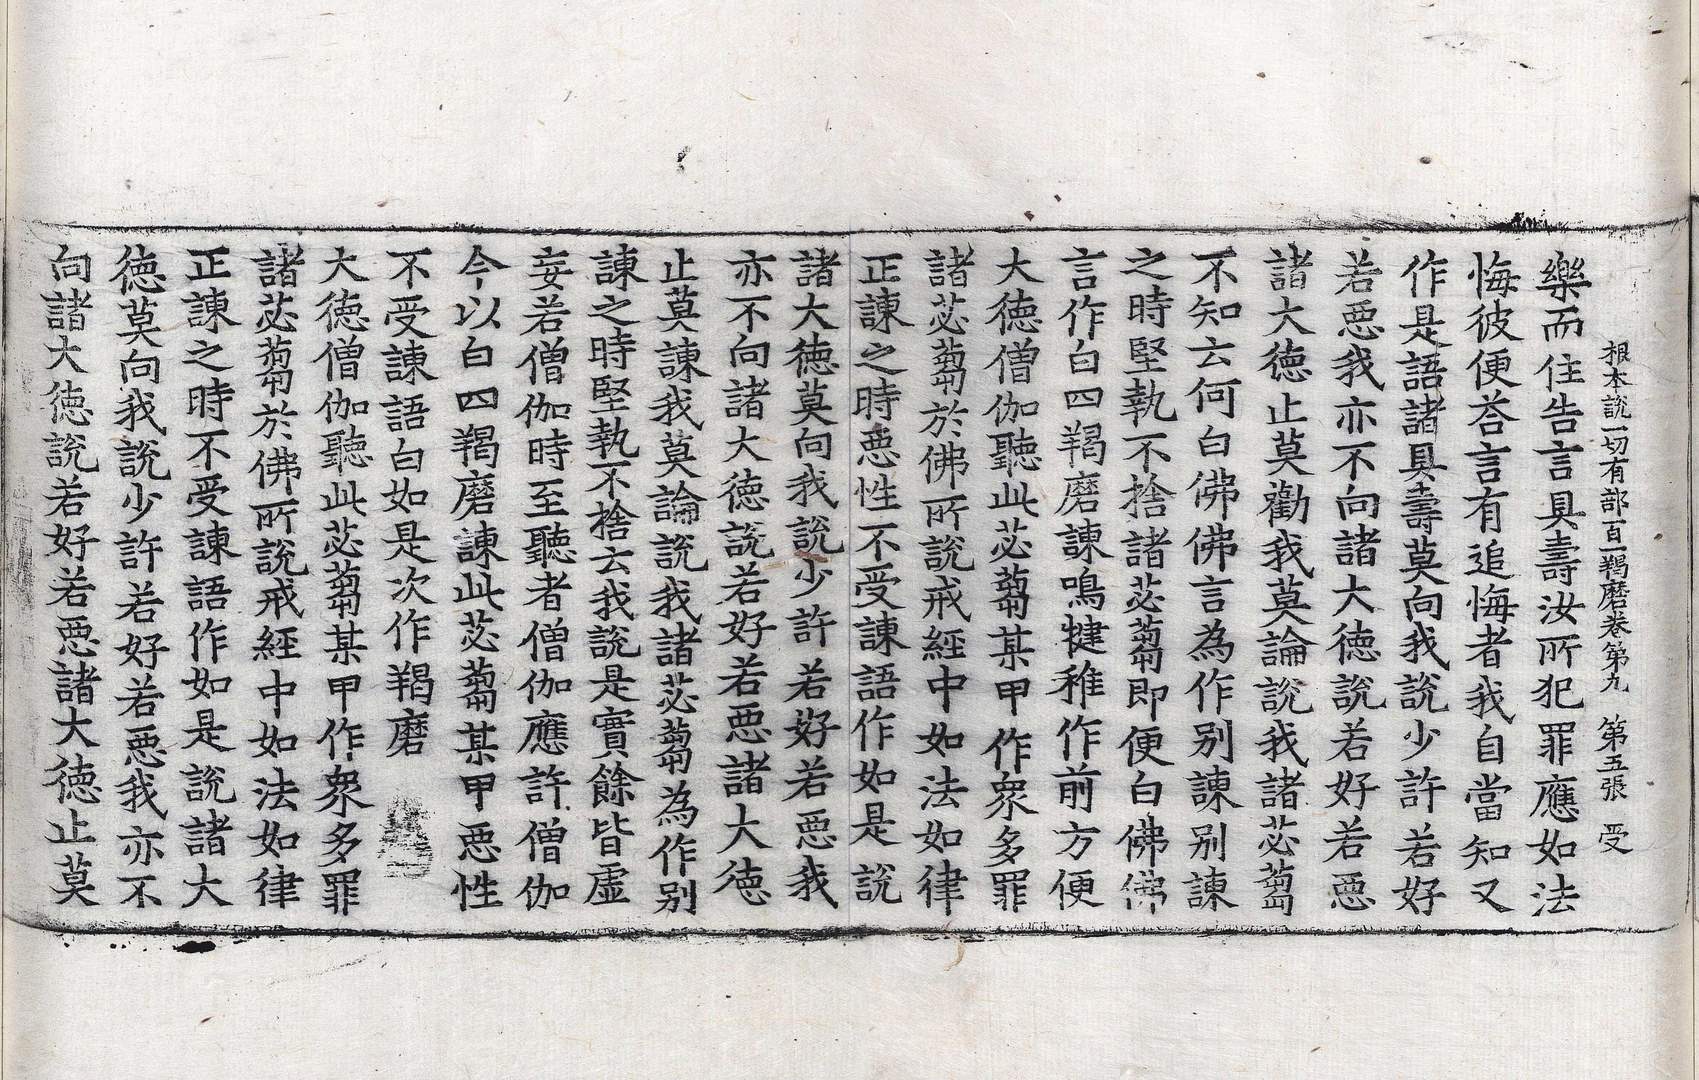 根本說一切有部百一羯磨卷第九　第五張　受
樂而住告言具壽汝所犯罪應如法
悔彼便荅言有追悔者我自當知又
作是語諸具壽莫向我說少許若好
若惡我亦不向諸大德說若好若惡
諸大德止莫勸我莫論說我諸苾蒭
不知云何白佛佛言為作別諫別諫
之時堅執不捨諸苾蒭即便白佛佛
言作白四羯磨諫鳴揵稚作前方便
大德僧伽聽此苾蒭某甲作衆多罪
諸苾蒭於佛所說戒經中如法如律
正諫之時惡性不受諫語作如是說
諸大德莫向我說少許若好若惡我
亦不向諸大德說若好若惡諸大德
止莫諫我莫論說我諸苾蒭為作別
諫之時堅執不捨云我說是實餘皆虛
妄若僧伽時至聽者僧伽應許僧伽
今以白四羯磨諫此苾蒭某甲惡性
不受諫語白如是次作羯磨
大德僧伽聽此苾蒭某甲作衆多罪
諸苾蒭於佛所說戒經中如法如律
正諫之時不受諫語作如是說諸大
德莫向我說少許若好若惡我亦不
向諸大德說若好若惡諸大德止莫